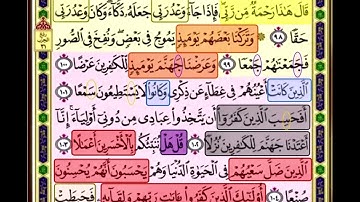 قَالَ هَٰذَا رَحْمَةٌ مِّن رَّبِّي فَإِذَا جَاءَ وَعْدُ رَبِّي جَعَلَهُ دَكَّاءَ وَكَانَ وَعْدُ رَبِّي
حَقًّا ٩٨ وَتَرَكْنَا بَعْضَهُمْ يَوْمَئِذٍ يَمُوجُ فِي بَعْضٍ وَنُفِخَ فِي الصُّورِ
فَجَمَعْنَاهُمْ جَمْعًا ٩٩ وَعَرَضْنَا جَهَنَّمَ يَوْمَئِذٍ لِّلْكَافِرِينَ عَرْضًا ١٠٠
الَّذِينَ كَانَتْ أَعْيُنُهُمْ فِي غِطَاءٍ عَن ذِكْرِي وَكَانُوا لَا يَسْتَطِيعُونَ سَمْعًا ١٠١
أَفَحَسِبَ الَّذِينَ كَفَرُوا أَن يَتَّخِذُوا عِبَادِي مِن دُونِي أَوْلِيَاءَ إِنَّا
أَعْتَدْنَا جَهَنَّمَ لِلْكَافِرِينَ نُزُلًا ١٠٢ قُلْ هَلْ نُنَبِّئُكُم بِالْأَخْسَرِينَ أَعْمَالًا ١٠٣
الَّذِينَ ضَلَّ سَعْيُهُمْ فِي الْحَيَاةِ الدُّنْيَا وَهُمْ يَحْسَبُونَ أَنَّهُمْ يُحْسِنُونَ
صُنْعًا ١٠٤ أُولَٰئِكَ الَّذِينَ كَفَرُوا بِآيَاتِ رَبِّهِمْ وَلِقَائِهِ فَحَبِطَتْ